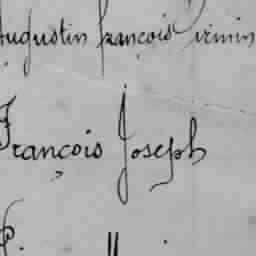 Augustin françois Firmin
François Joseph